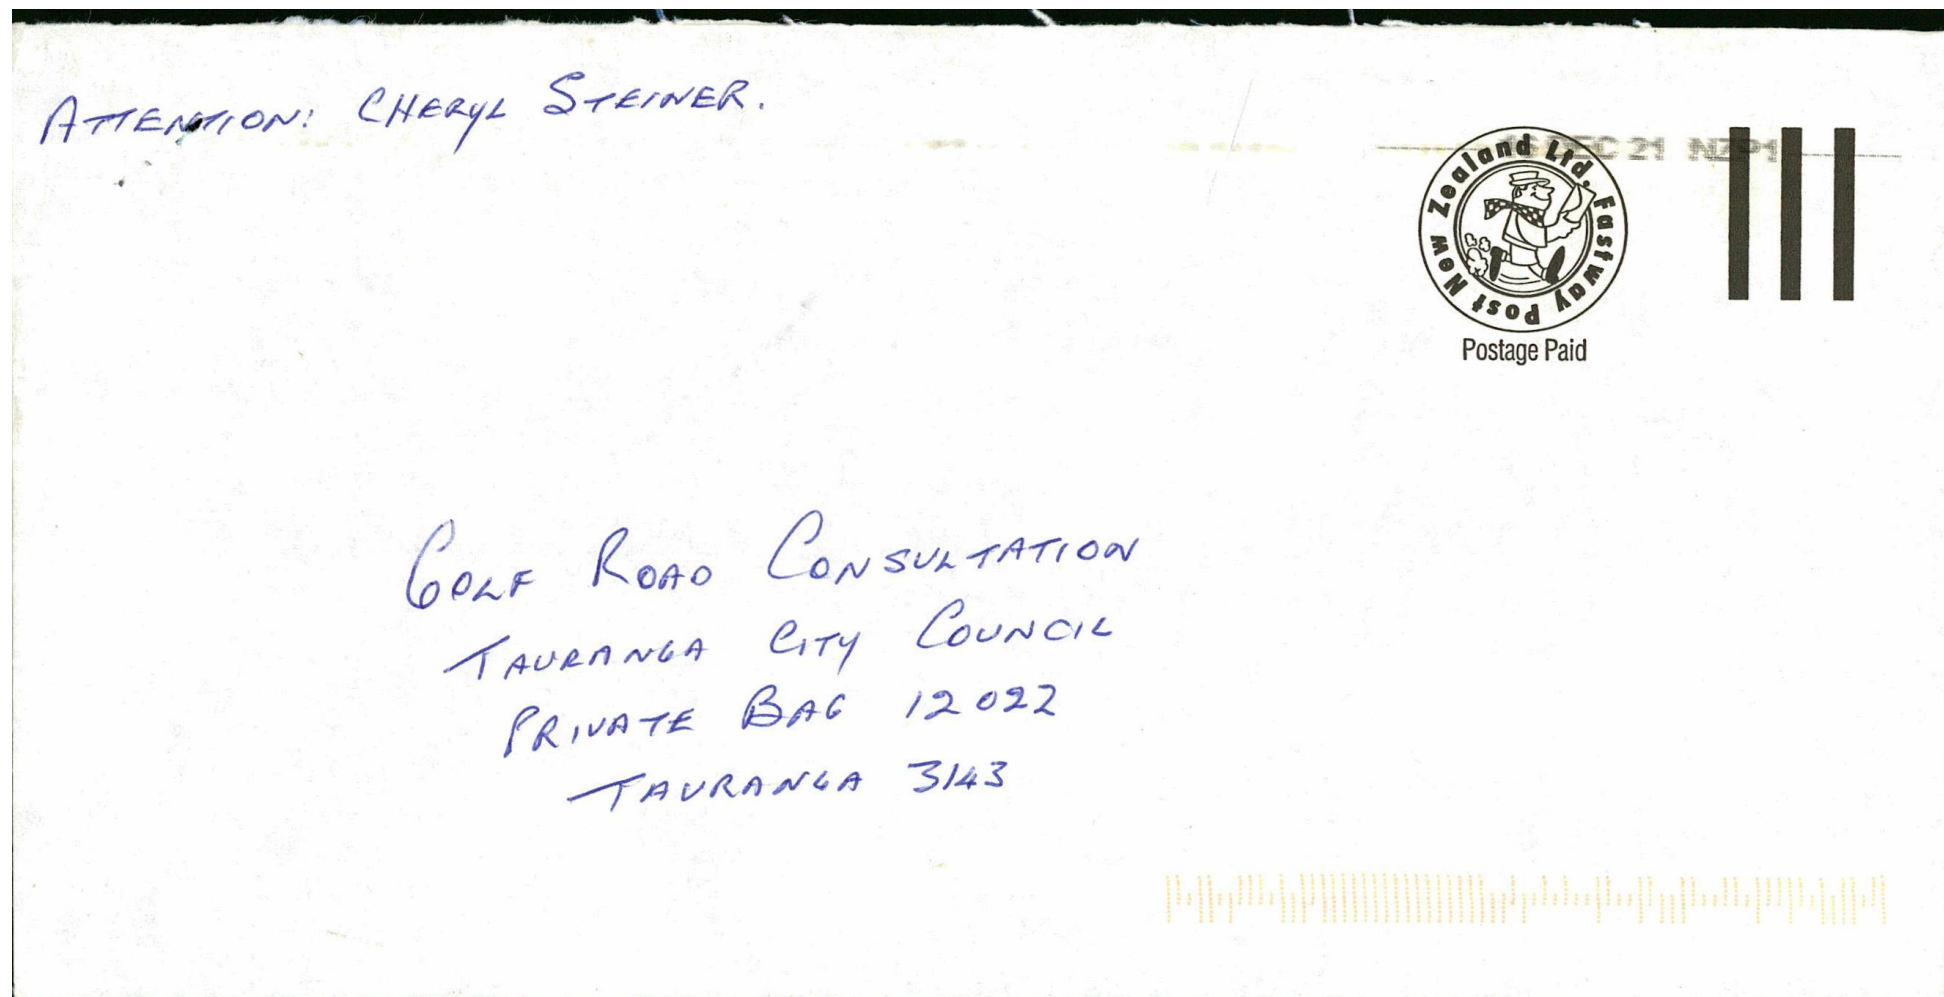 ATTENTION: CHERYL STEINER.
DEC 21 NZP1
Fastway Post New Zealand Ltd.
Postage Paid
GOLF ROAD CONSULTATION
TAURANGA CITY COUNCIL
PRIVATE BAG 12022
TAURANGA 3143